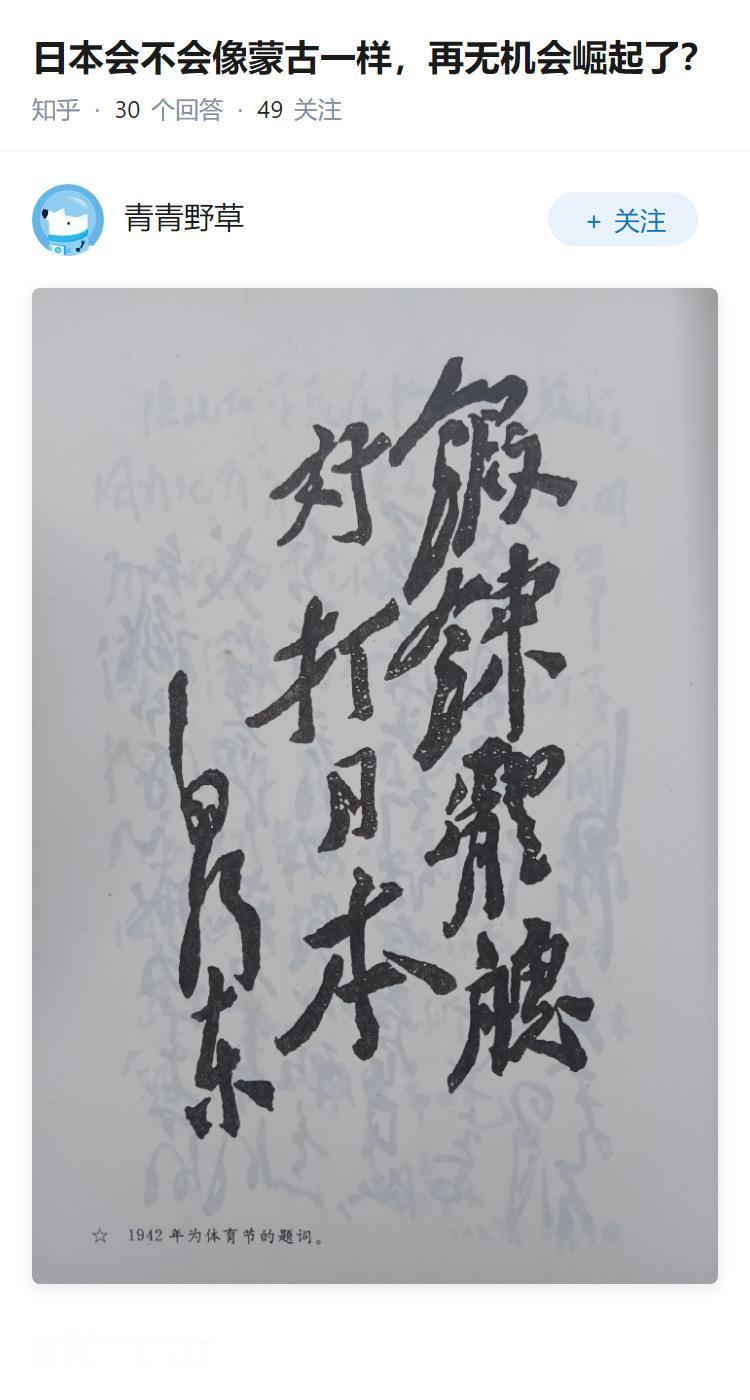 日本会不会像蒙古一样，再无机会崛起了？
知乎 · 30 个回答 · 49 关注
青青野草
+ 关注
鍛鍊體魄
好打日本
毛泽东
☆ 1942 年为体育节的题词。